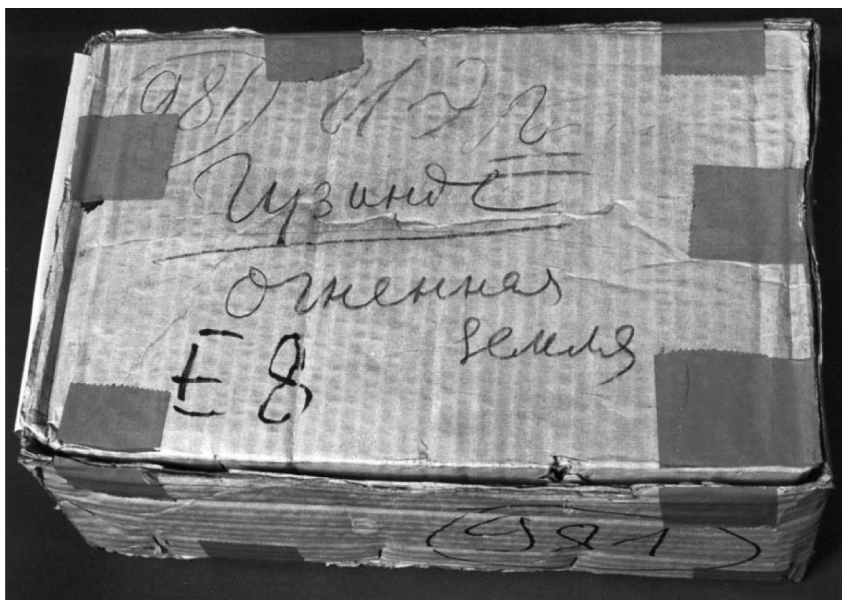 981
Гузинд
огненная
земля
E 8
(981)